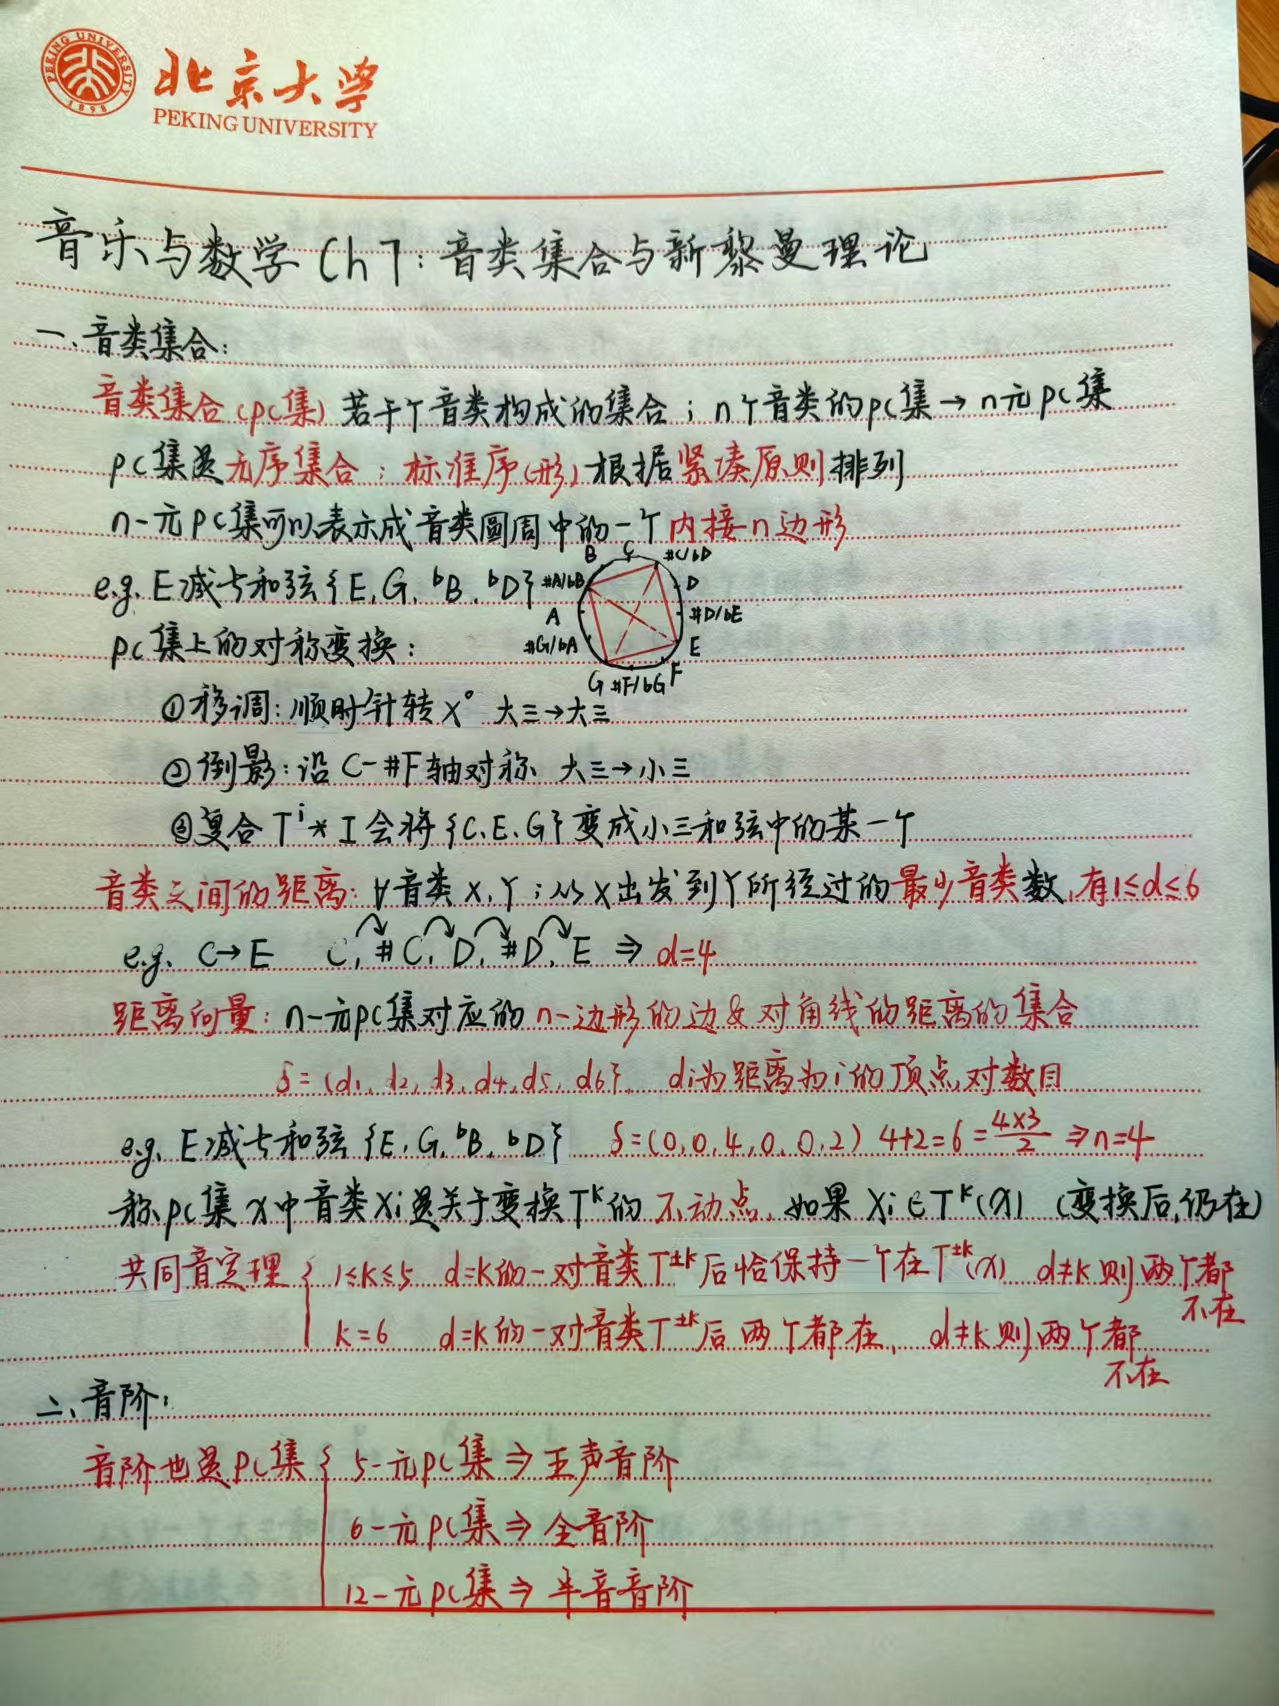 北京大学
PEKING UNIVERSITY
PEKING UNIVERSITY
1898
音乐与数学 Ch7：音类集合与新黎曼理论
一、音类集合：
音类集合(pc集) 若干个音类构成的集合；n个音类的pc集→n元pc集
pc集是无序集合；标准序(形)根据紧凑原则排列
n-元pc集可以表示成音类圆周中的一个内接n边形
e.g. E减七和弦{E, G, ᵇB, ᵇD}
B C #C/bD
#A/bB D
A #D/bE
#G/bA E
G #F/bG F
pc集上的对称变换：
①移调：顺时针转X° 大三→大三
②倒影：设C-#F轴对称 大三→小三
③复合 Tⁱ*I会将{C、E、G}变成小三和弦中的某一个
音类之间的距离：∀音类X,Y；从X出发到Y所经过的最少音类数,有1≤d≤6
e.g. C→E C, #C, D, #D, E ⇒ d=4
距离向量：n-元pc集对应的n-边形的边&对角线的距离的集合
δ=(d1, d2, d3, d4, d5, d6}. di为距离为i的顶点对数目
e.g. E减七和弦{E, G, ᵇB, ᵇD} δ=(0,0,4,0,0,2) 4+2=6=4×3/2 ⇒n=4
称pc集x中音类Xi是关于变换Tᵏ的不动点，如果Xi∈Tᵏ(x) (变换后,仍在)
共同音定理{ 1≤k≤5 d=k的一对音类T±ᵏ后恰保持一个在T±ᵏ(x) d≠k则两个都不在
k=6 d=k的一对音类T±ᵏ后两个都在, d≠k则两个都不在
二、音阶：
音阶也是pc集{ 5-元pc集⇒五声音阶
6-元pc集⇒全音阶
12-元pc集⇒半音音阶